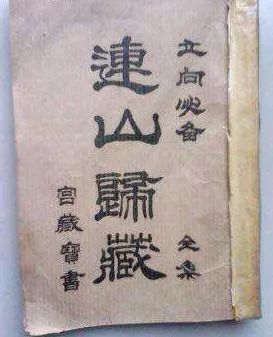 立向必备 全集
連山歸藏
宫藏寶書